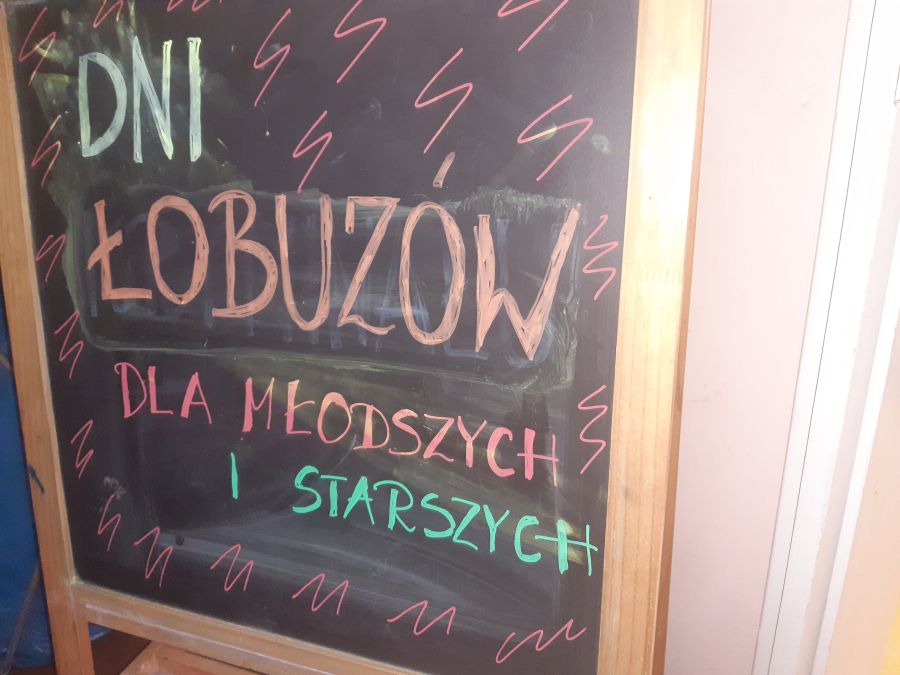 DNI
ŁOBUZÓW
DLA MŁODSZYCH
I STARSZYCH